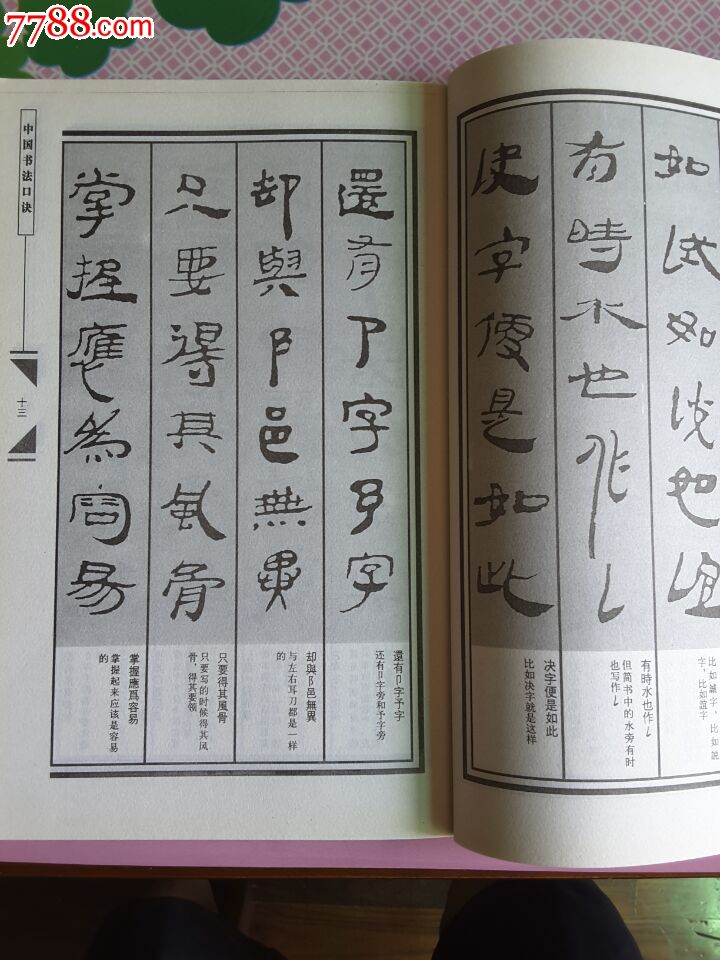 7788.com
如試如說如誼
有時水也作乚
决字便是如此
比如誠字，比如說
字，比如誼字
有時水也作乚
但简书中的水旁有时
也写作乚
决字便是如此
比如决字就是这样
還有卩字予字
却與阝邑無異
只要得其風骨
掌握應爲容易
還有卩字予字
还有卩字旁和予字旁
却與阝邑無異
与左右耳刀都是一样
的
只要得其風骨
只要写的时候得其风
骨，得其要领
掌握應爲容易
掌握起来应该是容易
的
中国书法口诀
十三